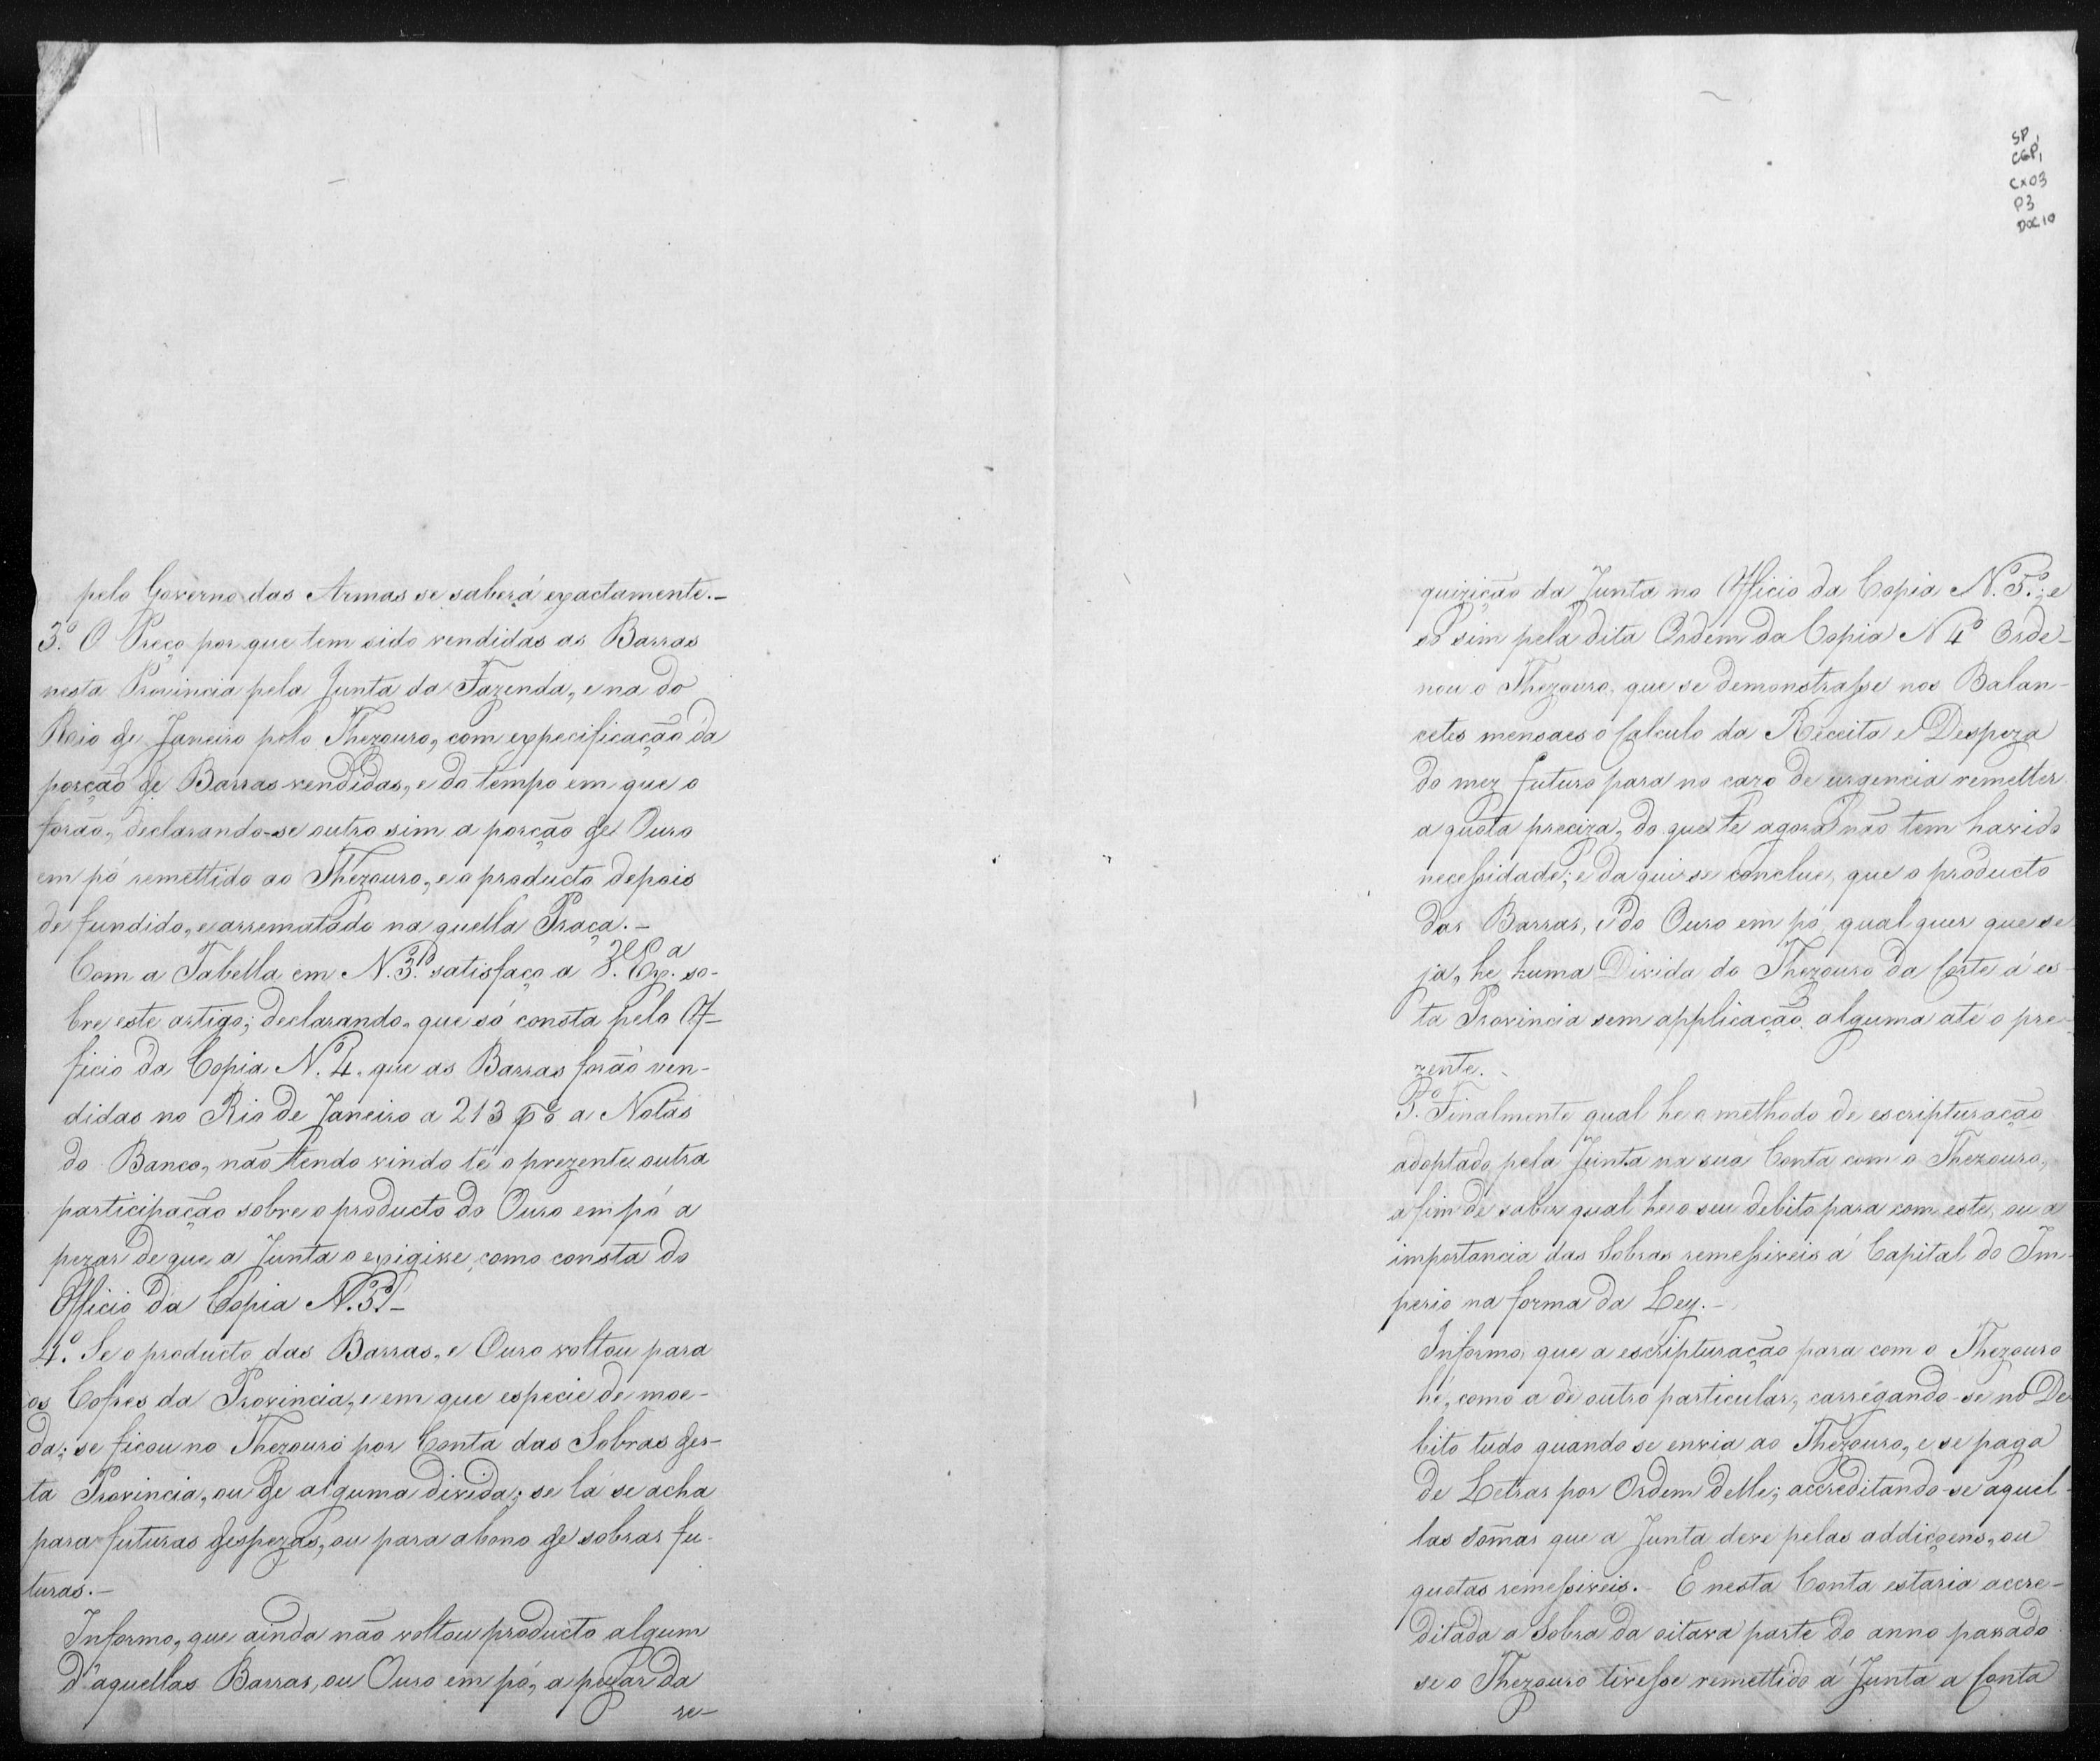 pelo Governo das Armas se saberá exactamente.-
3.º O Preço por que tem sido vendidas as Barras
nesta Provincia pela Junta da Fazenda, e na do
Rio de Janeiro pelo Thezouro, com expecificação da
porção de Barras vendidas, e do tempo em que o
forão, declarando-se outro sim a porção de Ouro
em pó remettido ao Thezouro, e o producto depois
de fundido, e arrematado na quella Praça.-
Com a Tabella em N.º 3.º satisfaço a V. Ex.ª so-
bre este artigo; declarando, que só consta pelo Of-
ficio da Copia N.º 4. que as Barras forão ven-
didas no Rio de Janeiro a 213 p% a Notas
do Banco, não tendo vindo té o prezente outra
participação sobre o producto do Ouro em pó a
pezar de que a Junta o exigisse, como consta do
Officio da Copia N.º 5.º-
4.º Se o producto das Barras, e Ouro voltou para
os Cofres da Provincia, e em que especie de moe-
da; se ficou no Thezouro por Conta das Sobras des-
ta Provincia, ou de alguma divida; se lá se acha
para futuras despezas, ou para abono de sobras fu-
turas.-
Informo, que ainda não voltou producto algum
d'aquellas Barras, ou Ouro em pó, a pezar da
re-
SP,
CGP,
Cx03
P3
Doc 10
quizição da Junta no Officio da Copia N.º 5.º; e
só sim pela dita Ordem da Copia N 4º Orde-
nou o Thezouro, que se demonstrasse nos Balan-
cetes mensaes o Calculo da Receita e Despeza
do mez futuro para no cazo de urgencia remetter
a quota preciza, do que té agora não tem havido
necessidade; e da qui se conclue, que o producto
das Barras, e do Ouro em pó qual quer que se
ja, he huma Divida do Thezouro da Corte á es-
ta Provincia sem applicação alguma até o pre-
zente.-
5.º Finalmente qual he o methodo de escripturação
adoptado pela Junta na sua Conta com o Thezouro,
a fim de saber qual he o seu debito para com este, ou a
importancia das Sobras remessiveis á Capital do Im-
perio na forma da Ley.-
Informo, que a escripturação para com o Thezouro
hé, como a de outro particular, carregando-se no De
bito tudo quando se envia ao Thezouro, e se paga
de Letras por Ordem delle; accreditando-se aquel-
las somas que a Junta deve pelas addiçoens, ou
quotas remessiveis. E nesta Conta estaria accre-
ditada a Sobra da oitava parte do anno passado
se o Thezouro tivesse remettido á Junta a Conta